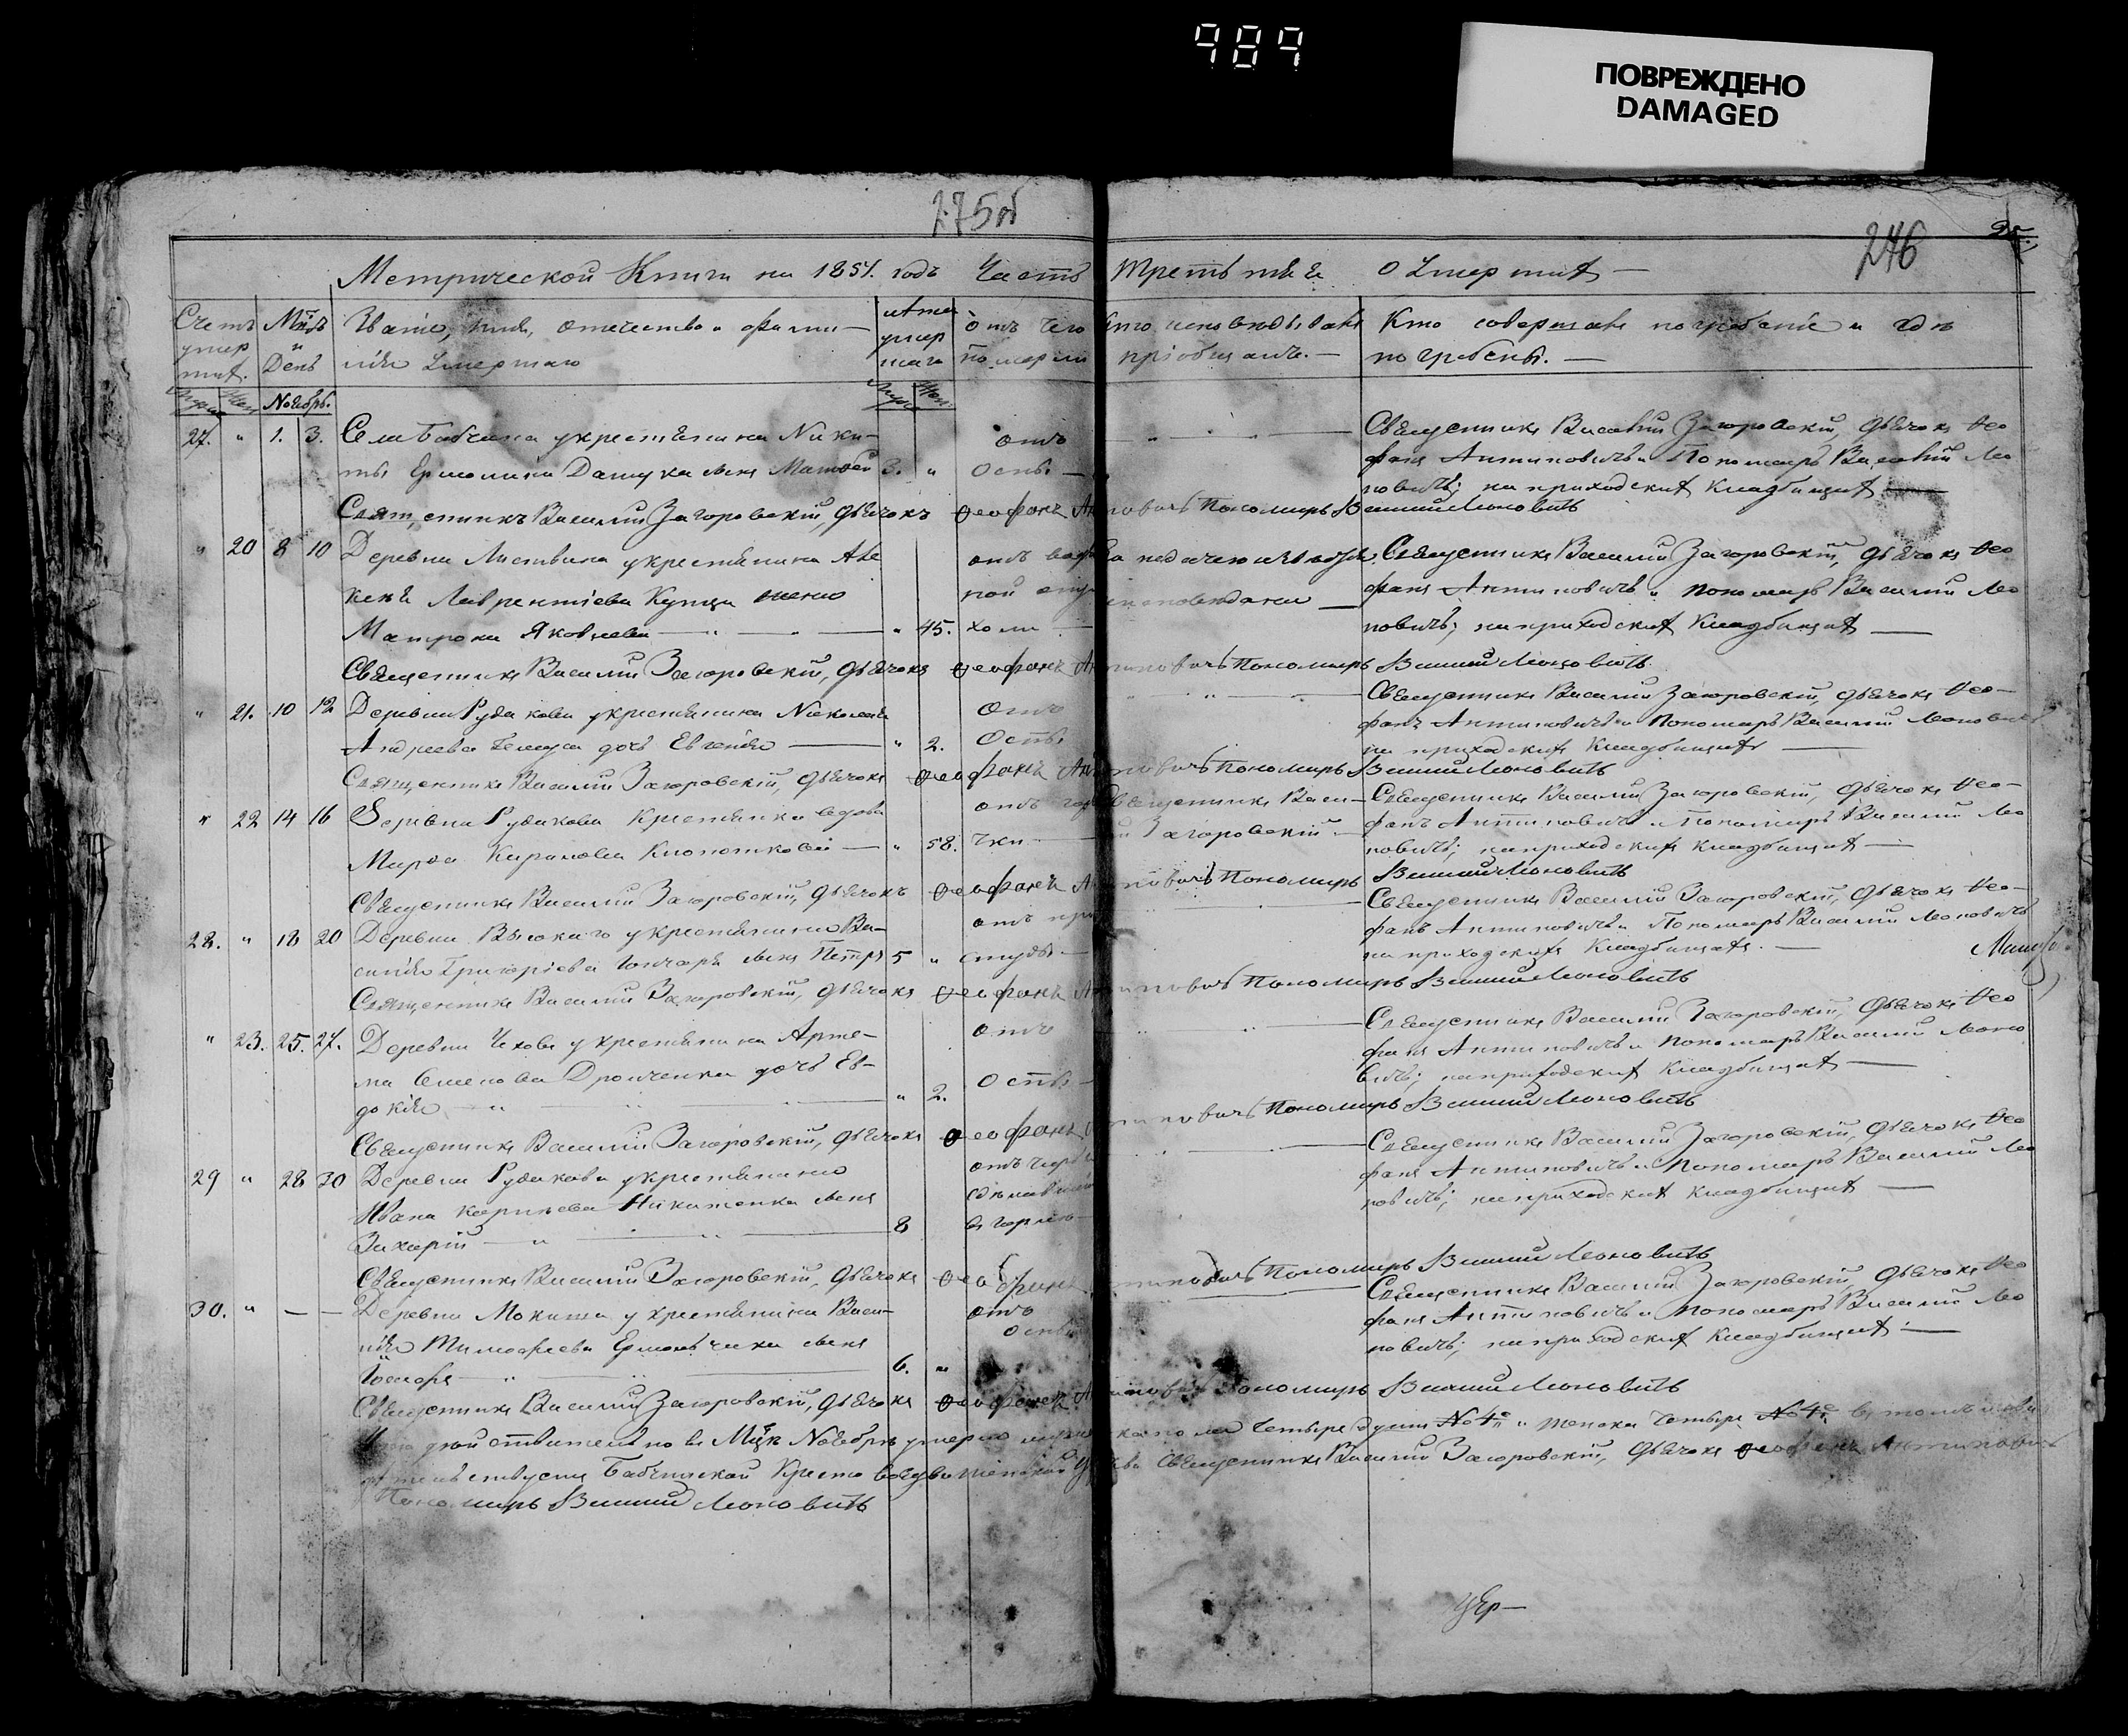 989
ПОВРЕЖДЕНО
DAMAGED
275об
246
Метрической Книги на 1851. годъ Часть третьяя о Умершихъ —
Счетъ умершихъ.
Мцъ и День
Званіе, имя, отечество и фамилія Умершаго
лѣта умершаго
отъ чего померли
Кто исповѣдывалъ пріобщалъ. —
Кто совершалъ погребеніе и гдѣ погребены. —
Ноябрь.
27. " 1. 3. Села Бабчина у крестьянина Ники-
ты Ермолина Дашука сынъ Матвѣй 3. " отъ Оспы. —
Священникъ Василій Загоровскій, дьячокъ Ѳео
фанъ Антиповичъ и Пономарь Василій Ло
новичъ; на приходскихъ Кладбищахъ —
Священникъ Василій Загоровскій, дьячокъ Ѳеофанъ Антиповичъ Пономарь Василій Лоновичъ
" 20 8 10 Деревни Листвина у крестьянина Але
ксѣя Лаврентіева Купца жена
Матрона Яковлева — " — " 45.
отъ водя
ной опу
холи
исповѣдана —
Священникъ Василій Загоровскій, дьячокъ Ѳео
фанъ Антиповичъ и пономарь Василій Ло
новичъ; на приходскихъ Кладбищахъ —
Священникъ Василій Загоровскій, дьячокъ Ѳеофанъ Антиповичъ Пономарь Василій Лоновичъ
" 21. 10 12 Деревни Рудакова у крестьянина Николая
Андреева дочь Евгенія — " 2. отъ Оспы
Священникъ Василій Загоровскій, дьячокъ Ѳео-
фанъ Антиповичъ и Пономарь Василій Лоновичъ
на приходскихъ Кладбищахъ —
Священникъ Василій Загоровскій, дьячокъ Ѳеофанъ Антиповичъ Пономарь Василій Лоновичъ
" 22 14 16 Деревни Рудакова Крестьянка вдова
Марѳа — " 58. отъ горячки
Священникъ Васи-
лій Загоровскій —
Священникъ Василій Загоровскій, дьячокъ Ѳео-
фанъ Антиповичъ и Пономарь Василій Ло
новичъ; на приходскихъ кладбищахъ —
Священникъ Василій Загоровскій, дьячокъ Ѳеофанъ Антиповичъ Пономарь Василій Лоновичъ
28. " 18 20 Деревни Высокаго у крестьянина Ва-
силія Григоріева Гончара сынъ Петръ 5 " отъ простуды —
Священникъ Василій Загоровскій, дьячокъ Ѳео-
фанъ Антиповичъ и Пономарь Василій Лоновичъ
на приходскихъ Кладбищахъ. —
Священникъ Василій Загоровскій, дьячокъ Ѳеофанъ Антиповичъ Пономарь Василій Лоновичъ
" 23. 25. 27. Деревни Чехова у крестьянина Арте-
ма Семенова Дромченка дочь Ев-
докія — " — " 2. отъ Оспы —
Священникъ Василій Загоровскій, дьячокъ Ѳео
фанъ Антиповичъ и пономарь Василій Лоно
вичъ; на приходскихъ Кладбищахъ —
Священникъ Василій Загоровскій, дьячокъ Ѳеофанъ Антиповичъ Пономарь Василій Лоновичъ
29 " 28 30 Деревни Рудакова у крестьянина
Ивана Никитенка сынъ
Захарій — " — 8
въ горлѣ
Священникъ Василій Загоровскій, дьячокъ Ѳео
фанъ Антиповичъ и пономарь Василій Ло
новичъ; на приходскихъ кладбищахъ —
Священникъ Василій Загоровскій, дьячокъ Ѳеофанъ Антиповичъ Пономарь Василій Лоновичъ
30. " — — Деревни Мокиша у крестьянина Васи-
лія Тимофеева сынъ
6. " отъ оспы
Священникъ Василій Загоровскій, дьячокъ Ѳео
фанъ Антиповичъ и пономарь Василій Ло
новичъ; на приходскихъ Кладбищахъ —
Священникъ Василій Загоровскій, дьячокъ Ѳеофанъ Антиповичъ Пономарь Василій Лоновичъ
Что дѣйствительно въ Мцѣ Ноябрѣ умерло мужеска пола четыре души № 4 и женска четыре № 4 въ томъ
свидѣтельствуемъ Бабчинской Кресто воздвиженской Церкви Священникъ Василій Загоровскій, дьячокъ Ѳеофанъ Антиповичъ
Пономарь Василій Лоновичъ